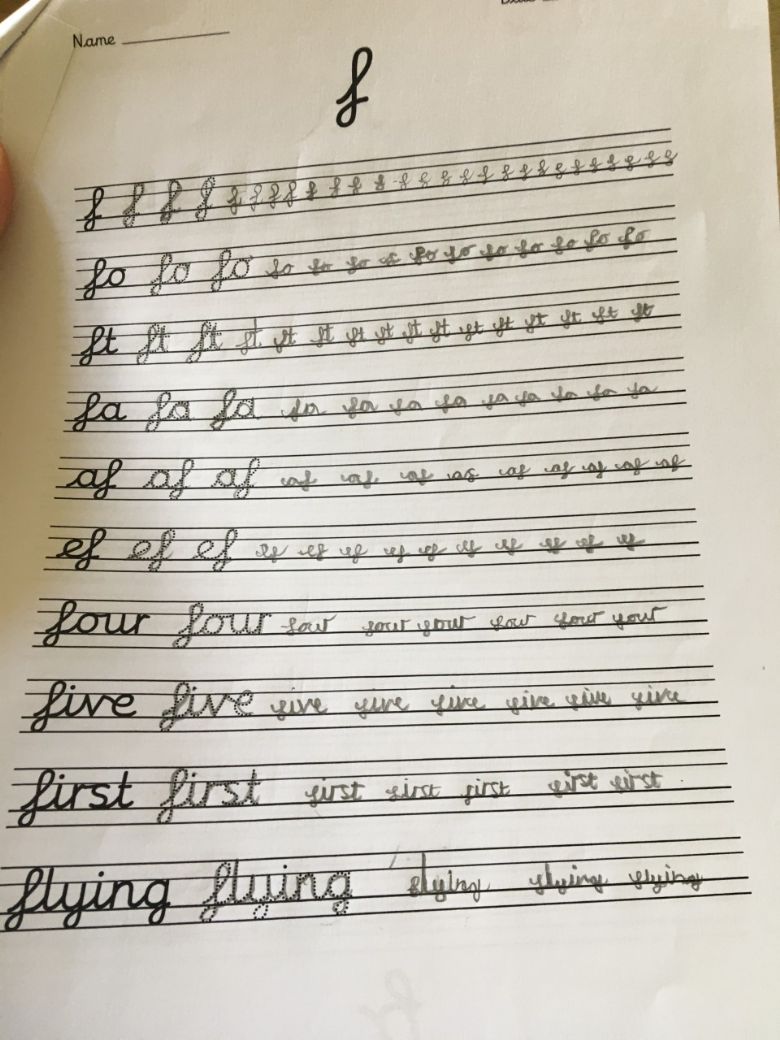 Name
f
f f f f f f f f f f f f f f f f f f f f f f f f f f f f
fo fo fo fo fo fo fo fo fo fo fo fo fo fo
ft ft ft ft ft ft ft ft ft ft ft ft ft ft ft ft
fa fa fa fa fa fa fa fa fa fa fa fa
af af af af af af af af af af af af
ef ef ef ef ef ef ef ef ef ef ef ef ef
four four four four four four four four
five five five five five five five five
first first first first first first first
flying flying flying flying flying